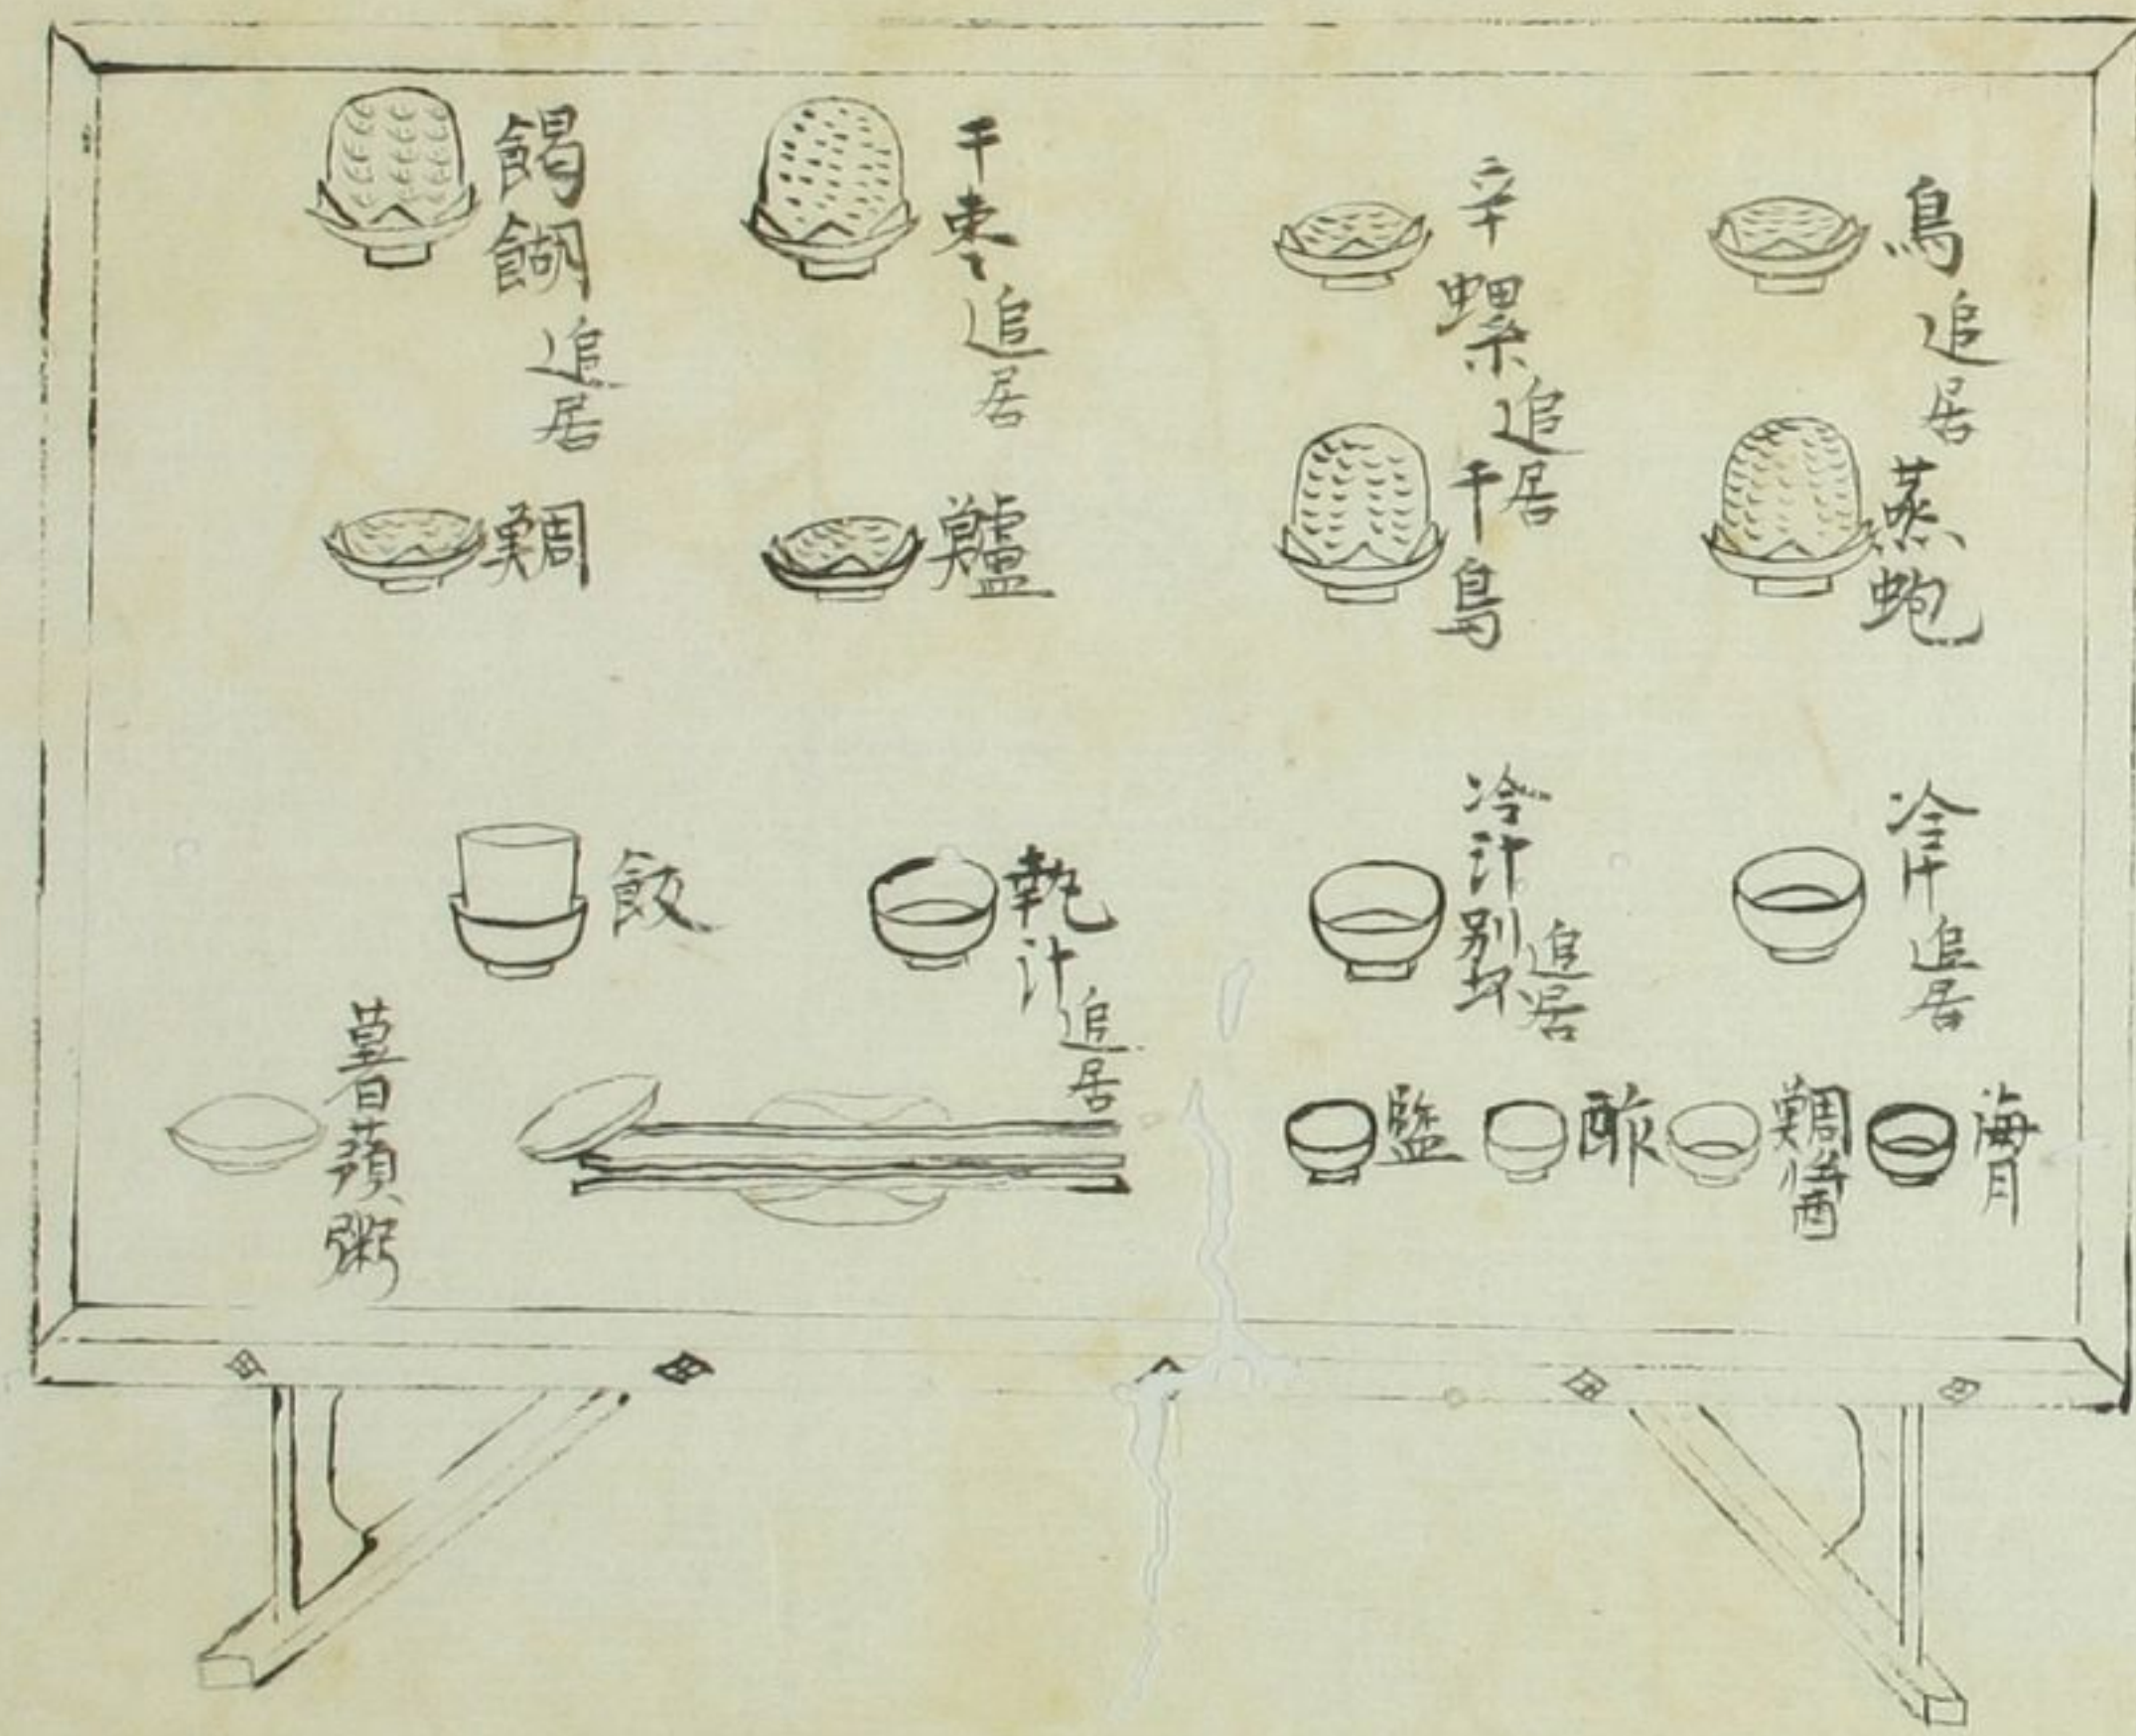 鳥 追居
辛螺 追居
干枣 追居
餲餬 追居
蒸蚫
干鳥
鱸
鯛
冷汁 追居
冷汁別坏 追居
執汁 追居
飯
海月
鯛醬
酢
鹽
薯蕷粥